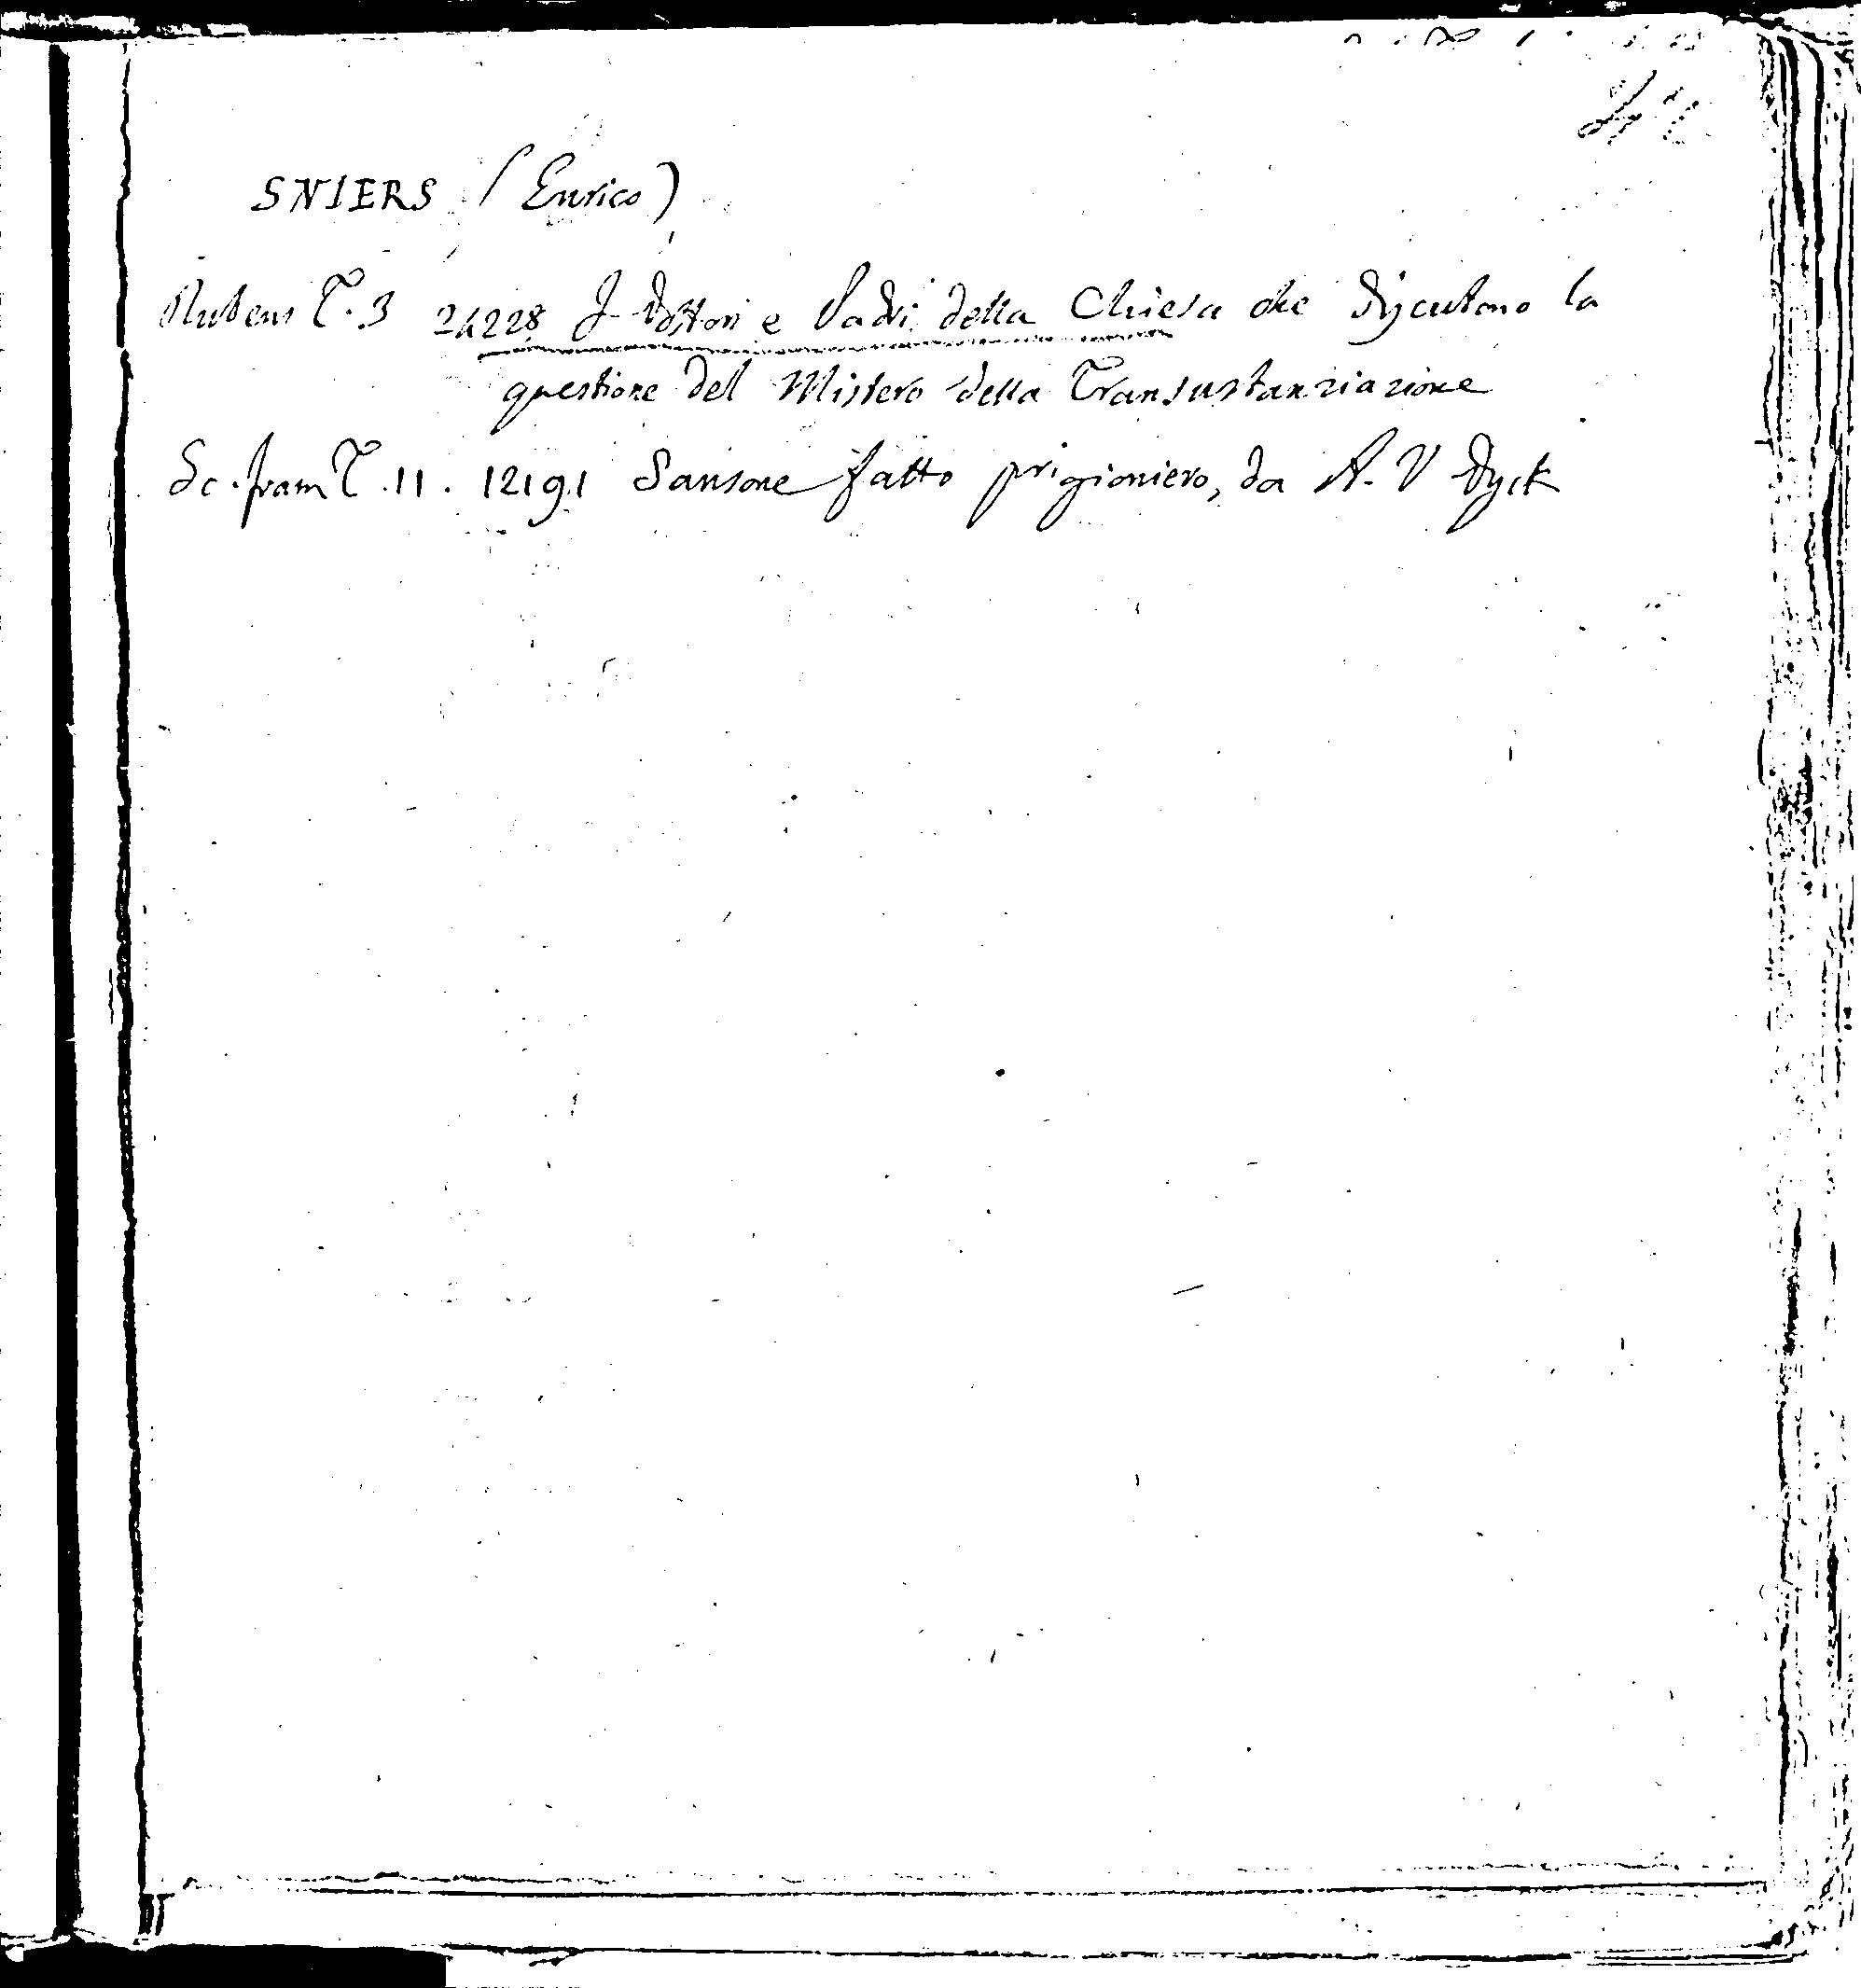 SNIERS (Enrico)
Rubens T. 3 24228 I Dottori e Padri della Chiesa che discutono la
questione del Mistero della Transustanziazione
Sc. fiam T. 11. 12191 Sansone fatto prigioniero, da A. V Dyck